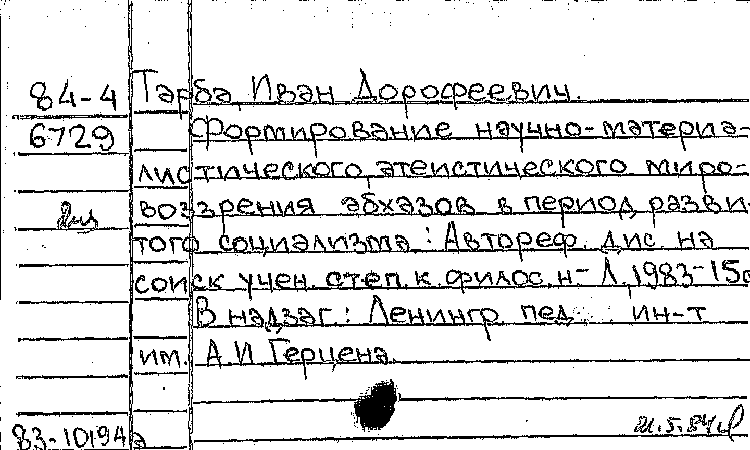 84-4 Тарба, Иван Дорофеевич.
6729 Формирование научно-материа-
листического, атеистического миро-
воззрения абхазов в период разви-
того социализма : Автореф. дис. на
соиск. учен. степ. к. филос. н.- Л., 1983-15с
В надзаг.: Ленингр. пед. ин-т
им. А.И. Герцена.
83-10194а 21.5.84